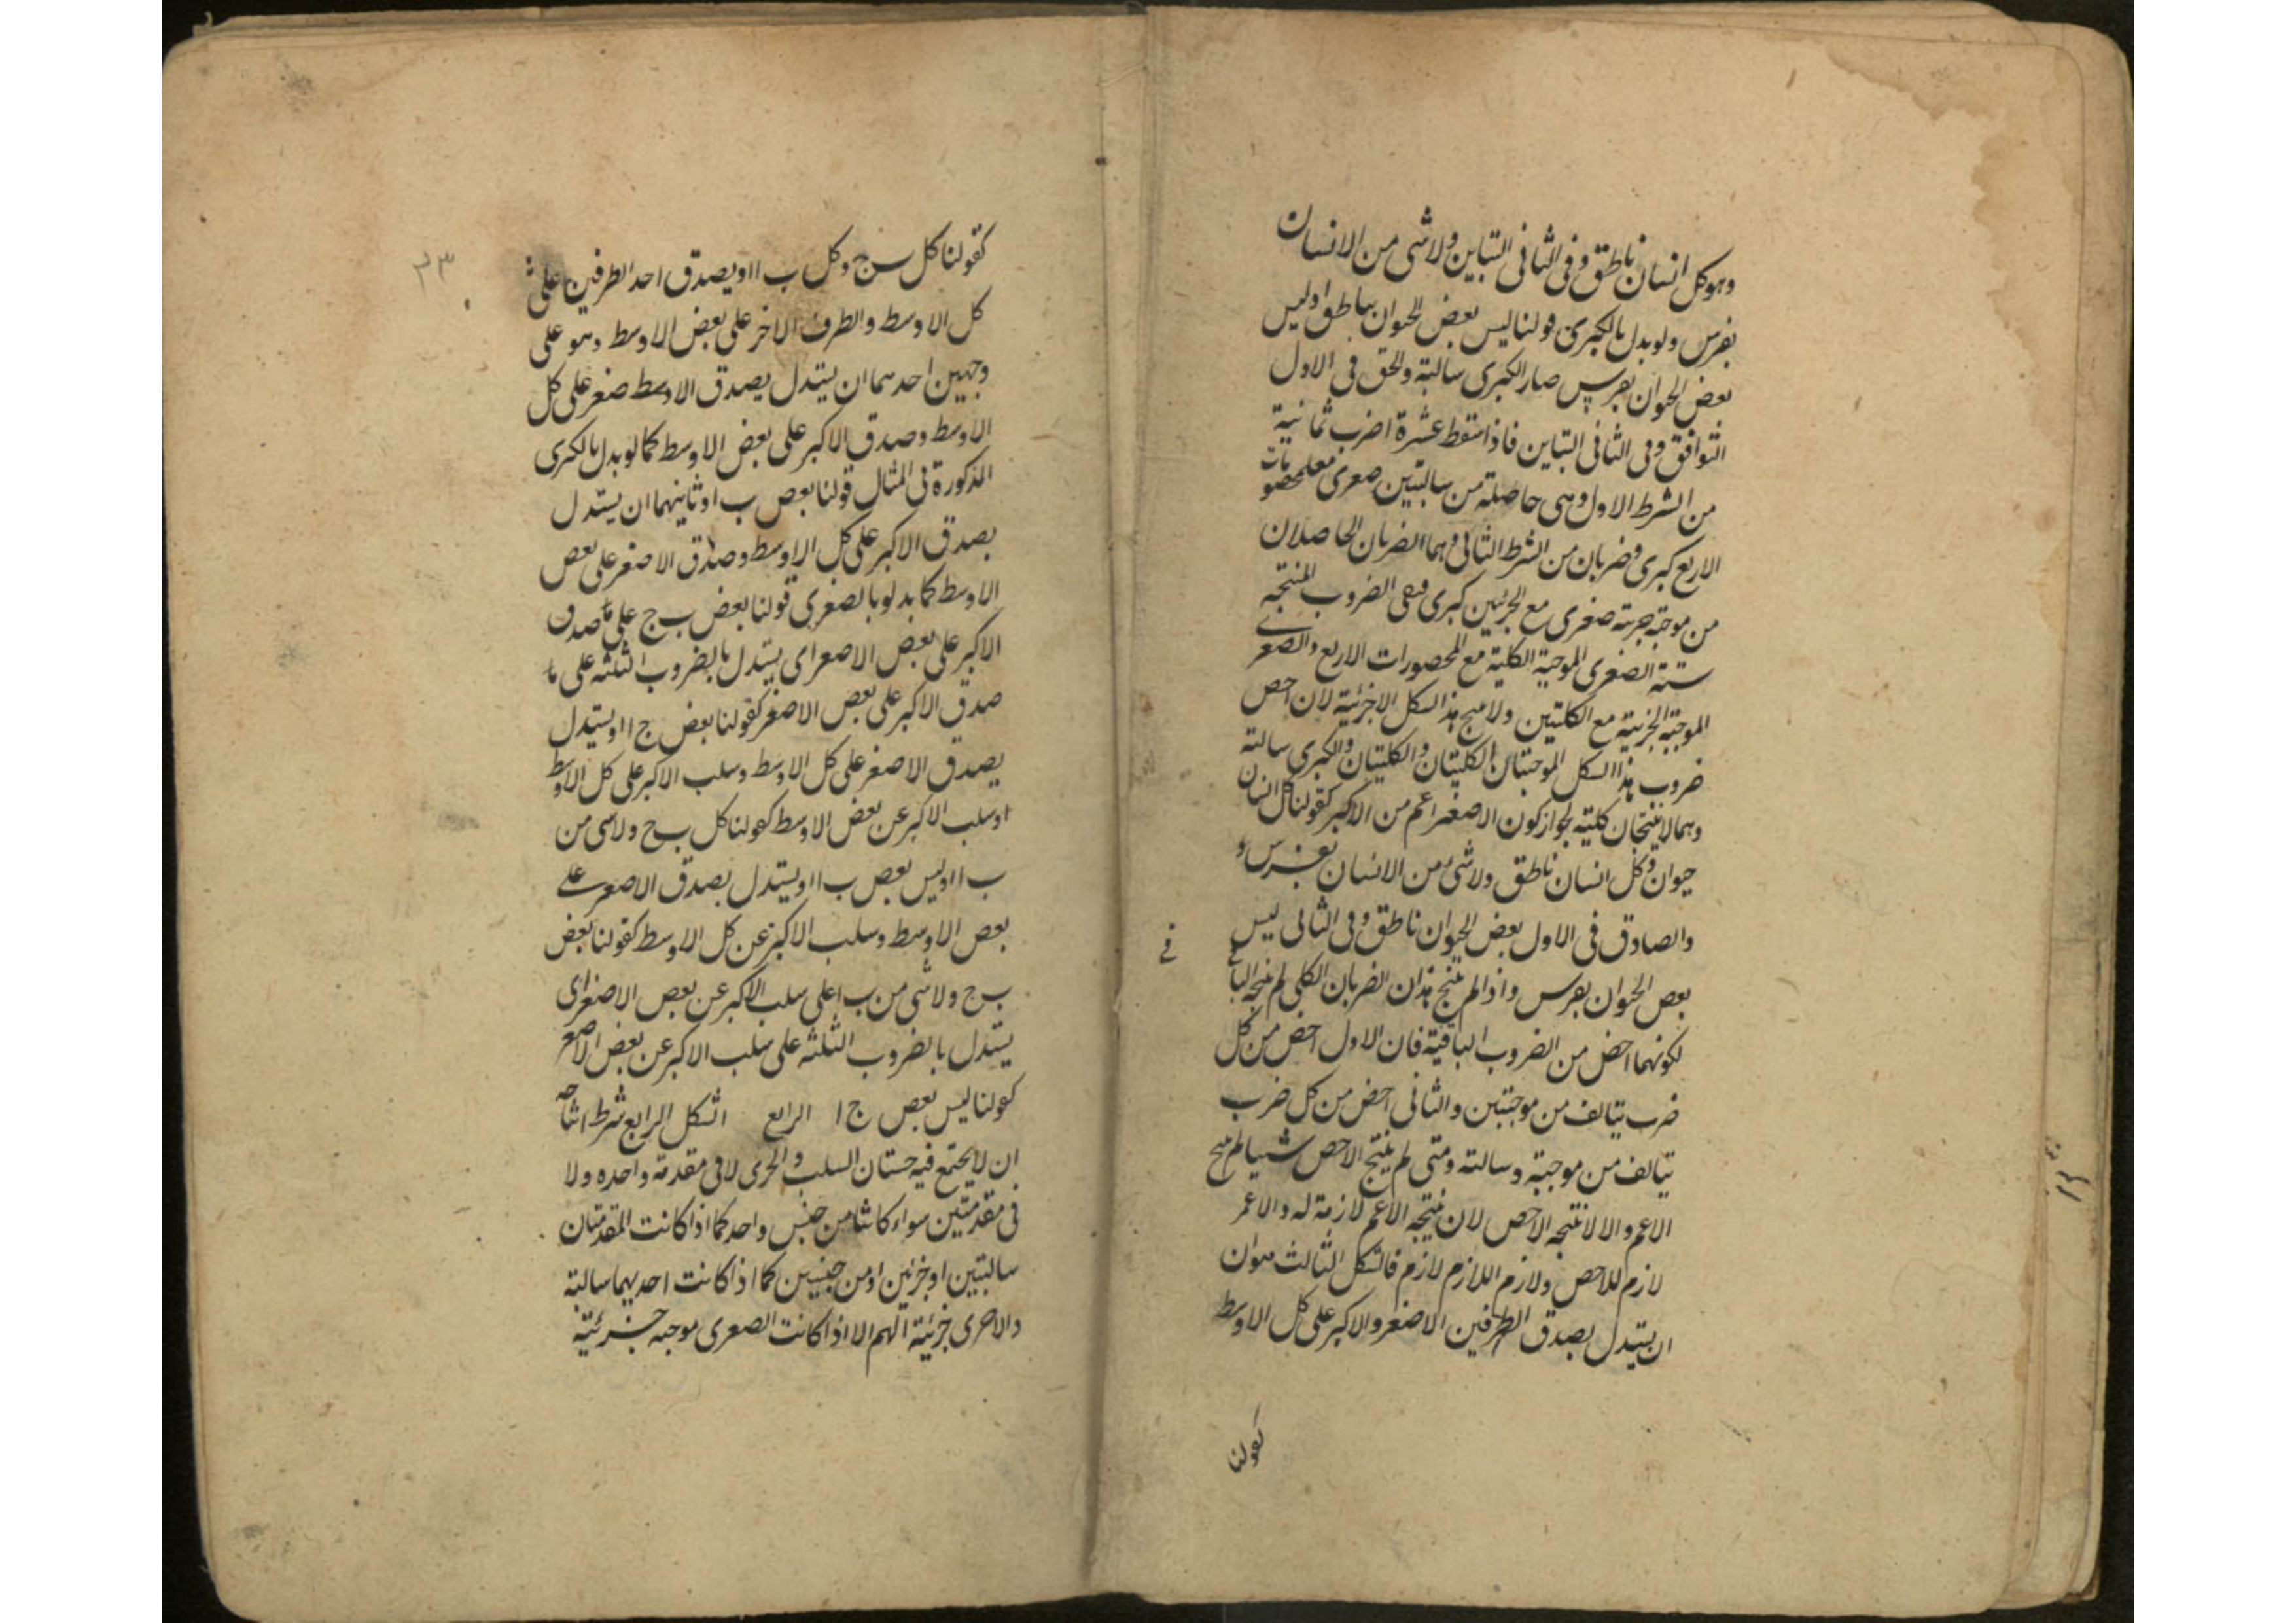 وهو كل انسان ناطق وفى الثانى التباين ولا شى من الانسان
بفرس ولو بدل بالكبرى قولنا ليس بعض الحيوان بناطق او ليس
بعض الحيوان بفرس صار الكبرى سالبة والحق فى الاول
التوافق وفى الثانى التباين فاذا سقط عشرة اضرب ثمانية
من الشرط الاول وهى حاصلة من سالبتين صغرى مع المحصورات
الاربع كبرى وضربان من الشرط الثانى وهما الضربان الحاصلان
من موجبة جزئية صغرى مع الجزئيتين كبرى فبقى الضروب المنتجه
ستة الصغرى الموجبة الكلية مع المحصورات الاربع والصغرى
الموجبة الجزئية مع الكليتين ولا ينتج هذا الشكل الا جزئية لان اخص
ضروب هذا الشكل الموجبتان الكليتان والكليتان والكبرى سالبة
وهما لا ينتجان كلية لجواز كون الاصغر اعم من الاكبر كقولنا كل انسان
حيوان وكل انسان ناطق ولا شى من الانسان بفرس و
والصادق فى الاول بعض الحيوان ناطق وفى الثانى ليس
بعض الحيوان بفرس واذا لم ينتج هذان الضربان الكلى لم ينتجه
فى
لكونهما اخص من الضروب الباقية فان الاول اخص من كل
ضرب يتالف من موجبتين والثانى اخص من كل ضرب
يتالف من موجبة وسالبة ومتى لم ينتج الاخص شيا لم ينتج
الاعم والا لانتجه الاخص لان نتيجة الاعم لازمة له والاعم
لازم للاخص ولازم اللازم لازم فالشكل الثالث هو ان
ان يستدل بصدق الطرفين الاصغر والاكبر على كل الاوسط
كقولنا
٣٣
كقولنا كل ب ج وكل ب ا او يصدق احد الطرفين على
كل الاوسط والطرف الاخر على بعض الاوسط وهو على
وجهين احدهما ان يستدل بصدق الاوسط صغر على كل
الاوسط وصدق الاكبر على بعض الاوسط كما لو بدل بالكبرى
المذكورة فى المثال قولنا بعض ب ا وثانيهما ان يستدل
بصدق الاكبر على كل الاوسط وصدق الاصغر على بعض
الاوسط كما بدلو بالصغرى قولنا بعض ب ج على صدق
الاكبر على بعض الاصغر اى يستدل بالضروب الثلثه على ما
صدق الاكبر على بعض الاصغر كقولنا بعض ج ا او يستدل
بصدق الاصغر على كل الاوسط وسلب الاكبر على كل الاوسط
او سلب الاكبر عن بعض الاوسط كقولنا كل ب ج ولا شى من
ب ا او ليس بعض ب ا او يستدل بصدق الاصغر على
بعض الاوسط وسلب الاكبر عن كل الاوسط كقولنا بعض
ب ج ولا شى من ب ا على سلب الاكبر عن بعض الاصغر اى
يستدل بالضروب الثلثه على سلب الاكبر عن بعض الاصغر
كقولنا ليس بعض ج ا الرابع الشكل الرابع شرط انتاجه
ان لا يجتمع فيه خستان السلب والجزئ لا فى مقدمة واحده ولا
فى مقدمتين سواء كانتا من جنس واحد كما اذا كانت المقدمتان
سالبتين او جزئيتين او من جنسين كما اذا كانت احديهما سالبة
والاخرى جزئية اللهم الا اذا كانت الصغرى موجبه جزئية